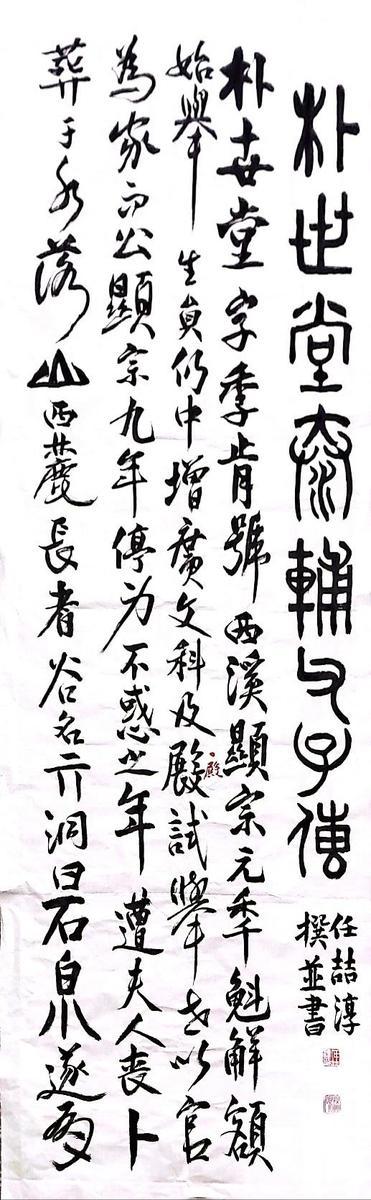 朴世堂泰輔父子傳
任喆淳
撰並書
朴世堂字季肯號西溪顯宗元年魁解額
始舉生員仍中增廣文科及殿試舉世以官
殿
為家而公顯宗九年停为不惑之年遭夫人喪卜
葬于水落山西麓長者谷名亓洞曰石泉遂